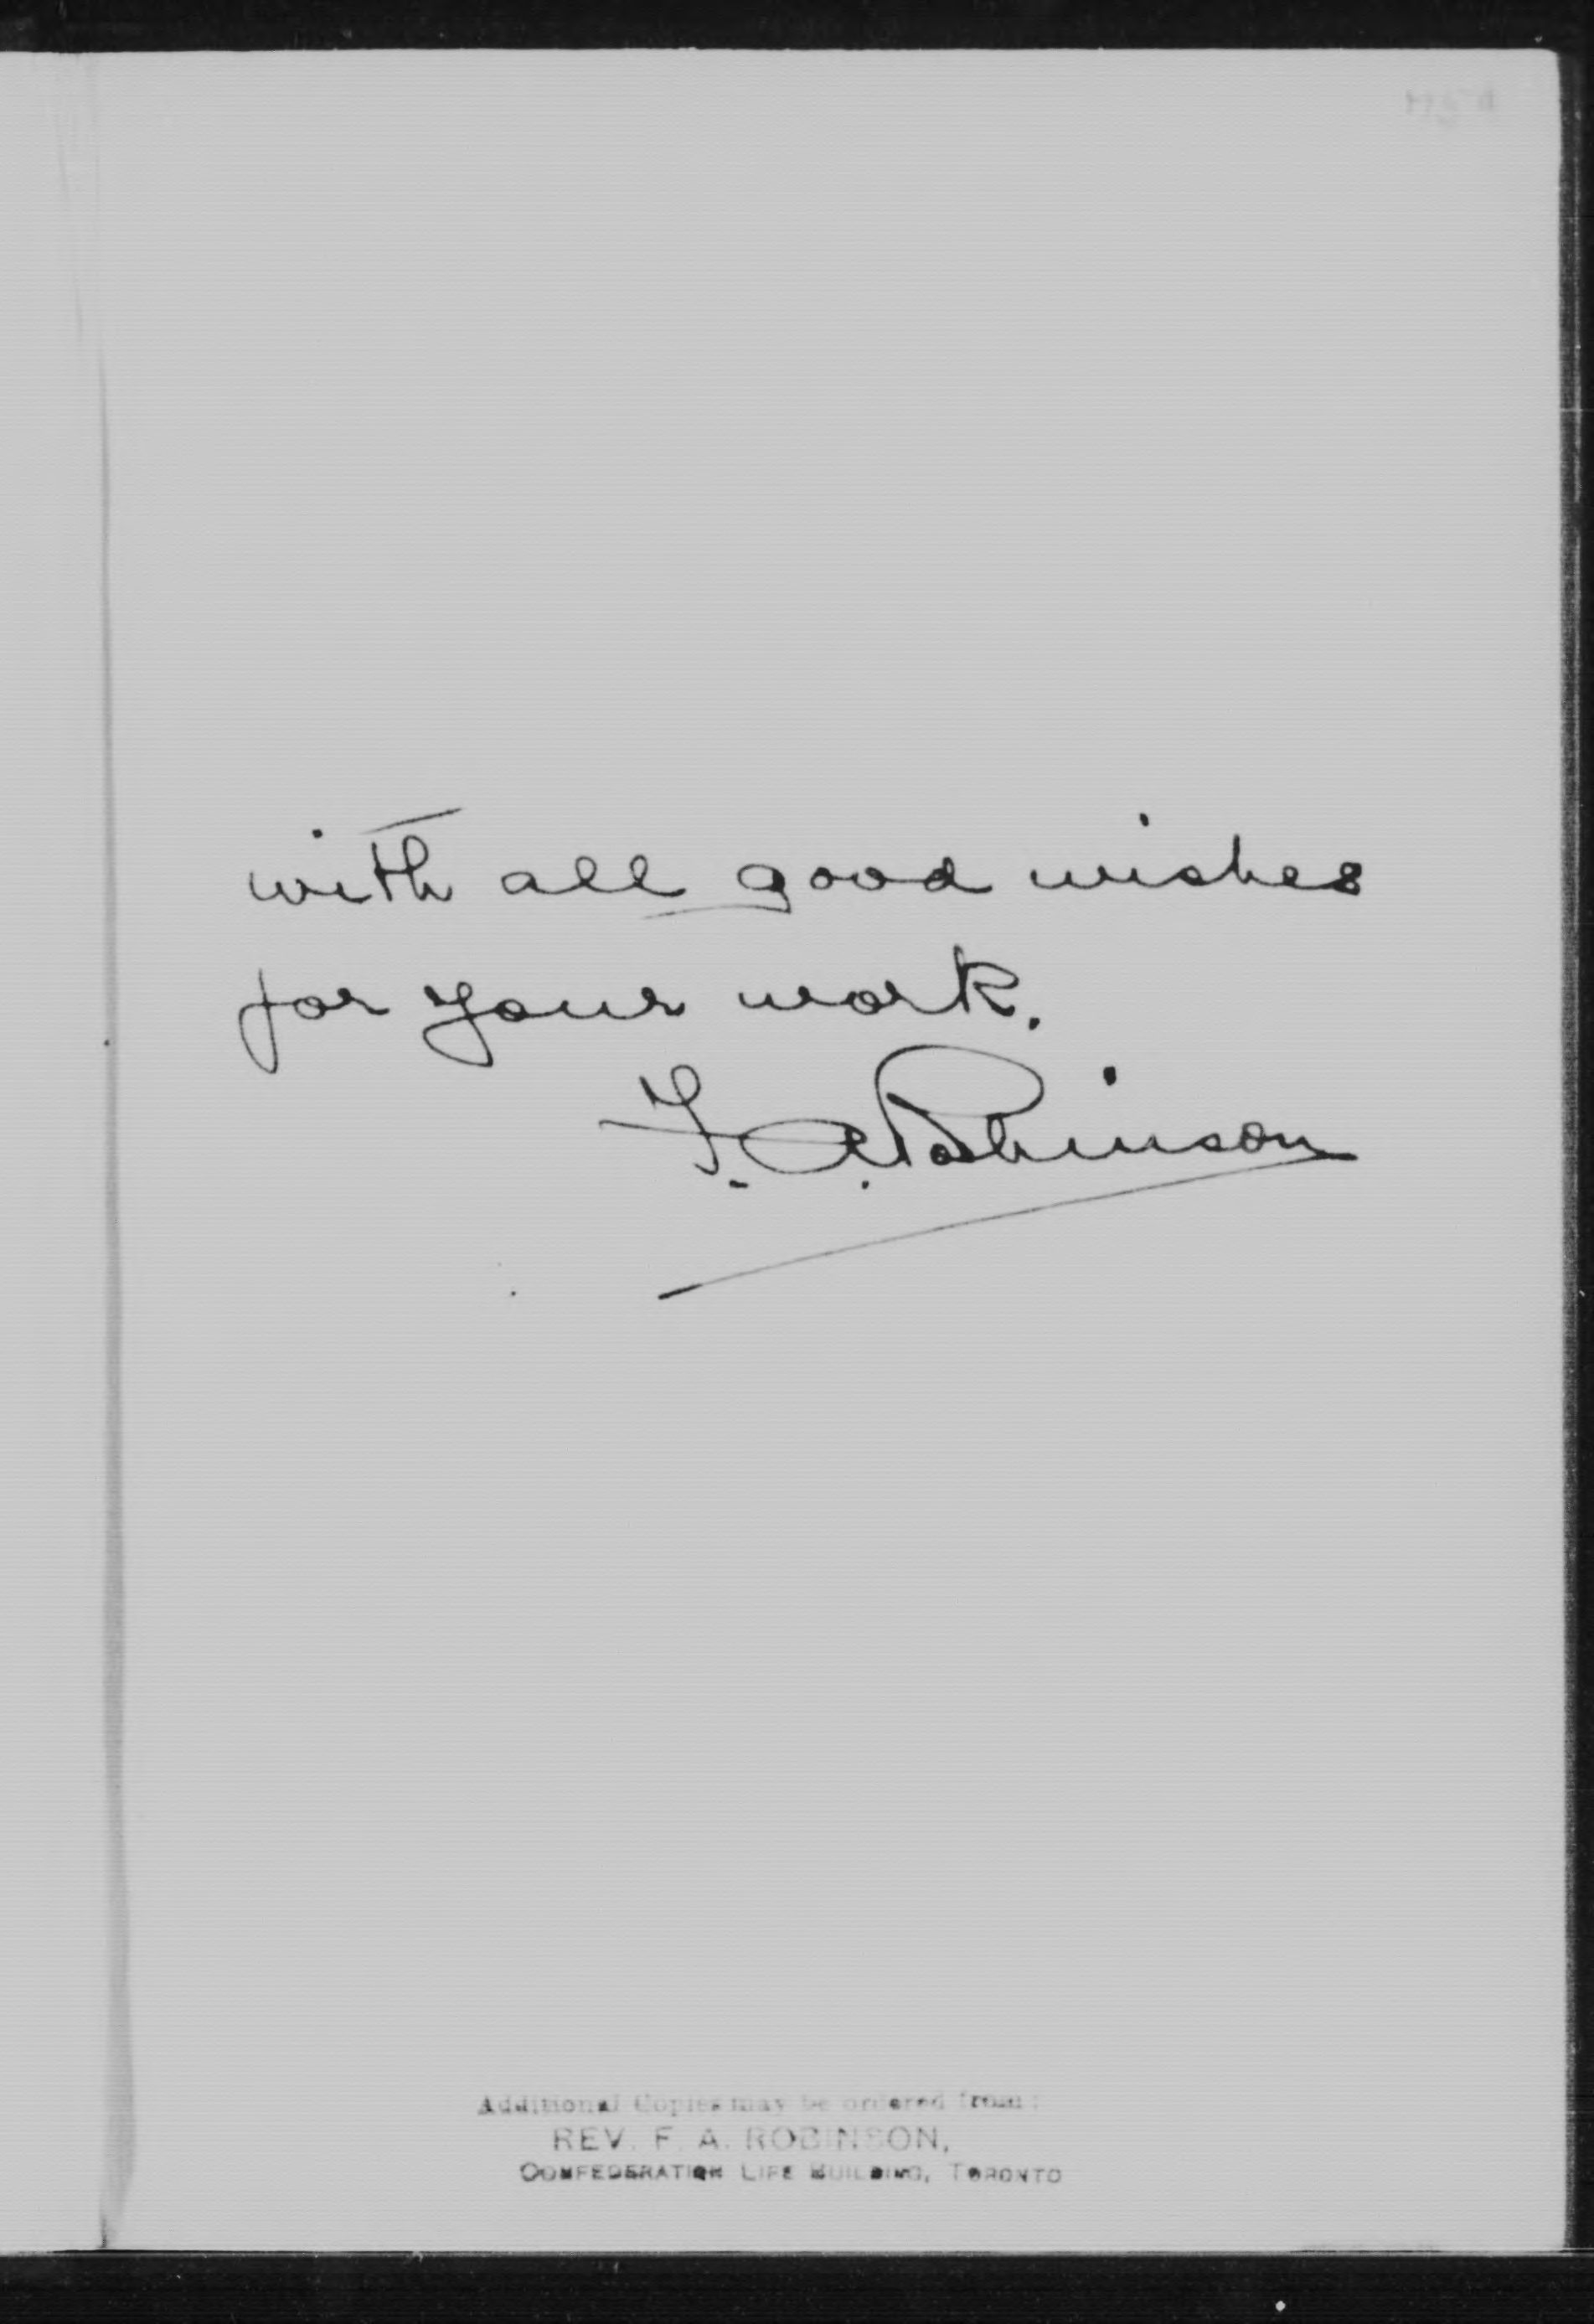 with all good wishes
for your work.
F. A. Robinson
Additional Copies may be ordered from:
REV. F. A. ROBINSON,
CONFEDERATION LIFE BUILDING, TORONTO